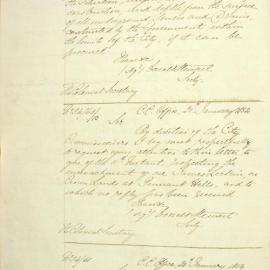 construction, and depth from the surface
of all underground
constructed by the Government within
the limits of the City, if it can be
procured
I have &c
Sgd Donald Stewart
Secty
The Colonial Secretary
C. C. Office, January 1854
Sir
By direction of the City
Commissioners I beg most respectfully
to request your attention to their letter to
you of the Instant, respecting the
encroachment of one James
Crown Lands at Pennant Hills, and to
which no reply has been received
I have &c
Sgd Donald Stewart
Secty
The Colonial Secretary
C. C. Office, January 1854